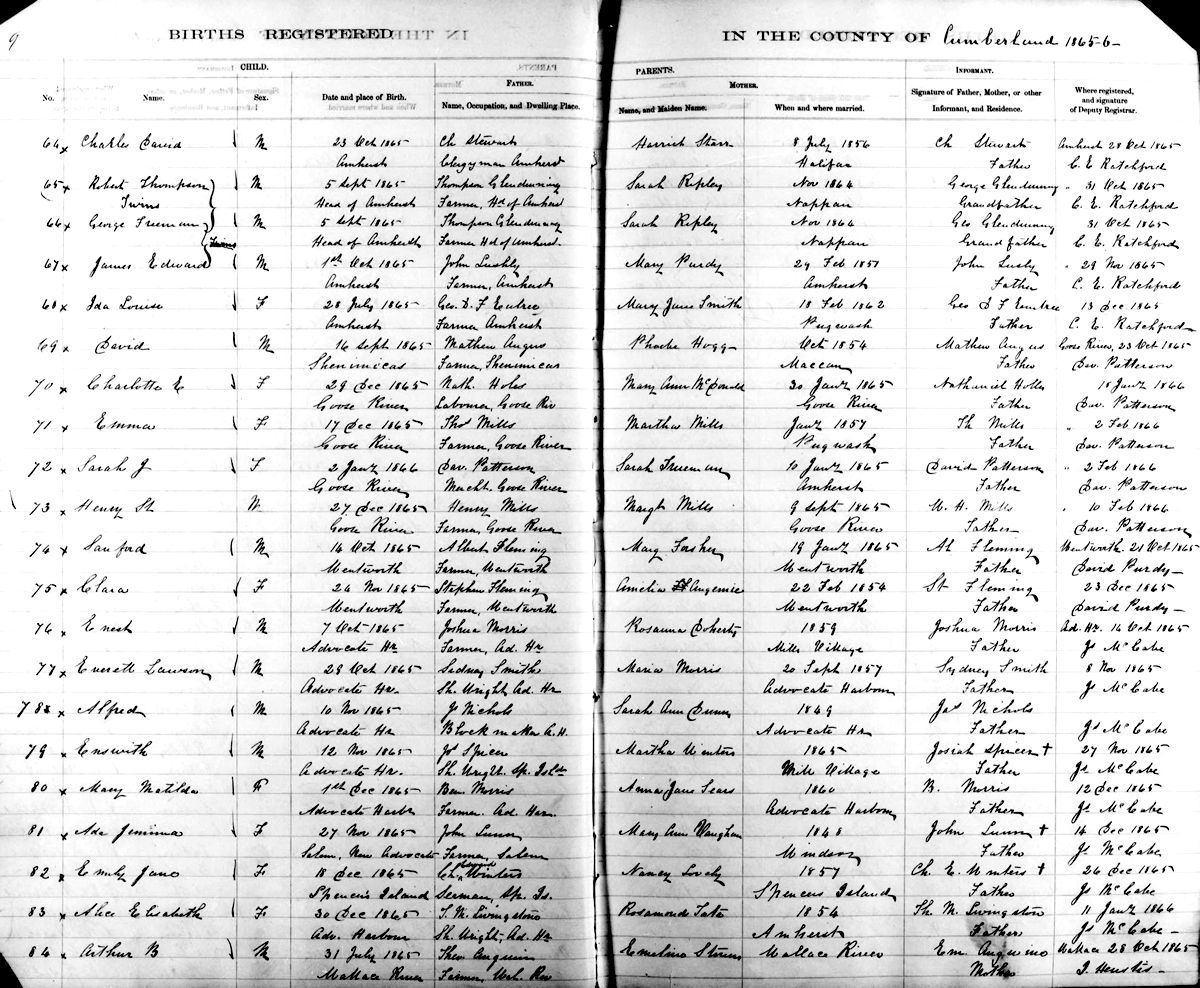 9
BIRTHS REGISTERED IN THE COUNTY OF Cumberland 1865-6-
CHILD. PARENTS. INFORMANT.
FATHER. MOTHER.
No. Name. Sex. Date and place of Birth. Name, Occupation, and Dwelling Place. Name, and Maiden Name. When and where married. Signature of Father, Mother, or other Informant, and Residence. Where registered, and signature of Deputy Registrar.
64 x Charles David M 23 Oct 1865 Ch Stewart Harriet Starr 8 July 1856 Ch Stewart Amherst 28 Oct 1865
Amherst Clergyman Amherst Halifax Father C. E. Ratchford
65 x Robert Thompson M 5 Sept 1865 Thompson Glendinning Sarah Ripley Nov 1864 George Glendinning " 31 Oct 1865
Twins Head of Amherst Farmer, Hd of Amherst Nappan Grandfather C. E. Ratchford
66 x George Freeman M 5 Sept 1865 Thompson Glendinning Sarah Ripley Nov 1864 Geo Glendinning 31 Oct 1865
Twins Head of Amherst Farmer Hd of Amherst Nappan Grandfather C. E. Ratchford
67 x James Edward M 1st Oct 1865 John Lusby Mary Purdy 29 Feb 1857 John Lusby " 29 Nov 1865
Amherst Farmer, Amherst Amherst Father C. E. Ratchford
68 x Ida Louise F 28 July 1865 Geo. D. F. Mary Jane Smith 18 Feb 1862 Geo D F 13 Dec 1865
Amherst Farmer Amherst Pugwash Father C. E. Ratchford
69 x David M 16 Sept 1865 Mathew Angus Phoebe Hogg Oct 1854 Mathew Angus Goose River, 23 Oct 1865
Shenimicas Farmer, Shenimicas Maccan Father Dav. Patterson
70 x Charlotte E F 29 Dec 1865 Nath. Holes Mary Ann McDonald 30 Jany 1865 Nathaniel Holes 18 Jany 1866
Goose River Labourer, Goose Riv Goose River Father Dav. Patterson
71 x Emma F 17 Dec 1865 Thos Mills Martha Mills Jany 1857 Th Mills " 2 Feb 1866
Goose River Farmer, Goose River Pugwash Father Dav. Patterson
72 x Sarah J F 2 Jany 1866 Dav. Patterson Sarah Freeman 10 Jany 1865 David Patterson " 2 Feb 1866
Goose River Mercht. Goose River Amherst Father Dav. Patterson
73 x Henry St M 27 Dec 1865 Henry Mills Margt Mills 9 Sept 1865 W. H. Mills " 10 Feb 1866
Goose River Farmer, Goose River Goose River Father Dav. Patterson
74 x Sanford M 14 Oct 1865 Albert Fleming Mary 19 Jany 1865 Al Fleming Wentworth 21 Oct 1865
Wentworth Farmer, Wentworth Wentworth Father David Purdy-
75 x Clara F 26 Nov 1865 Stephen Fleming Amelia Angevine 22 Feb 1854 St Fleming 23 Dec 1865
Wentworth Farmer, Wentworth Wentworth Father David Purdy-
76 x Ernest M 7 Oct 1865 Joshua Morris Rosanna Doherty 1859 Joshua Morris Ad. Hr. 14 Oct 1865
Advocate Hr Farmer, Ad. Hr Mills Village Father Js McCabe
77 x Everett Lawson M 29 Oct 1865 Sydney Smith Maria Morris 20 Sept 1857 Sydney Smith 8 Nov 1865
Advocate Hr. Sh. Wright Ad. Hr Advocate Harbour Father Js McCabe
78 x Alfred M 10 Nov 1865 J Nichols Sarah Ann Dunn 1849 Jas Nichols
Advocate Hr Blockmaker A. H. Advocate Hr Father Js McCabe
79 x Enswith M 12 Nov 1865 Js Spicer Martha Winters 1865 Josiah Spicer † 27 Nov 1865
Advocate Hr. Sh. Wright. Sp. Islds Mill Village Father Js McCabe
80 x Mary Matilda F 1st Dec 1865 Ben Morris Anna Jane Sears 1860 B. Morris 12 Dec 1865
Advocate Harbr Farmer. Ad. Har. Advocate Harbour Father Js McCabe
81 x Ada Jemima F 27 Nov 1865 John Lunn Mary Ann Vaughan 1848 John Lunn † 14 Dec 1865
Salem, New Advocate Farmer, Salem Windsor Father Js McCabe
82 x Emily Jane F 18 Dec 1865 Chs Edward Winters Nancy Lovely 1857 Ch. E. Winters † 26 Dec 1865
Spencer's Island Seaman, Sp. Is. Spencers Island Father Js McCabe
83 x Alice Elisabeth F 30 Dec 1865 T. M. Livingstone Rosamond Tate 1854 Th. M. Livingston 11 Jany 1866
Adv. Harbour Sh. Wright, Ad. Hr Amherst Father Js McCabe-
84 x Arthur B M 31 July 1865 Theo Angevine Emeline Stevens Wallace River Em. Angevine Wallace 28 Oct 1865
Wallace River Farmer, Wal. Riv Mother J. Heustis-